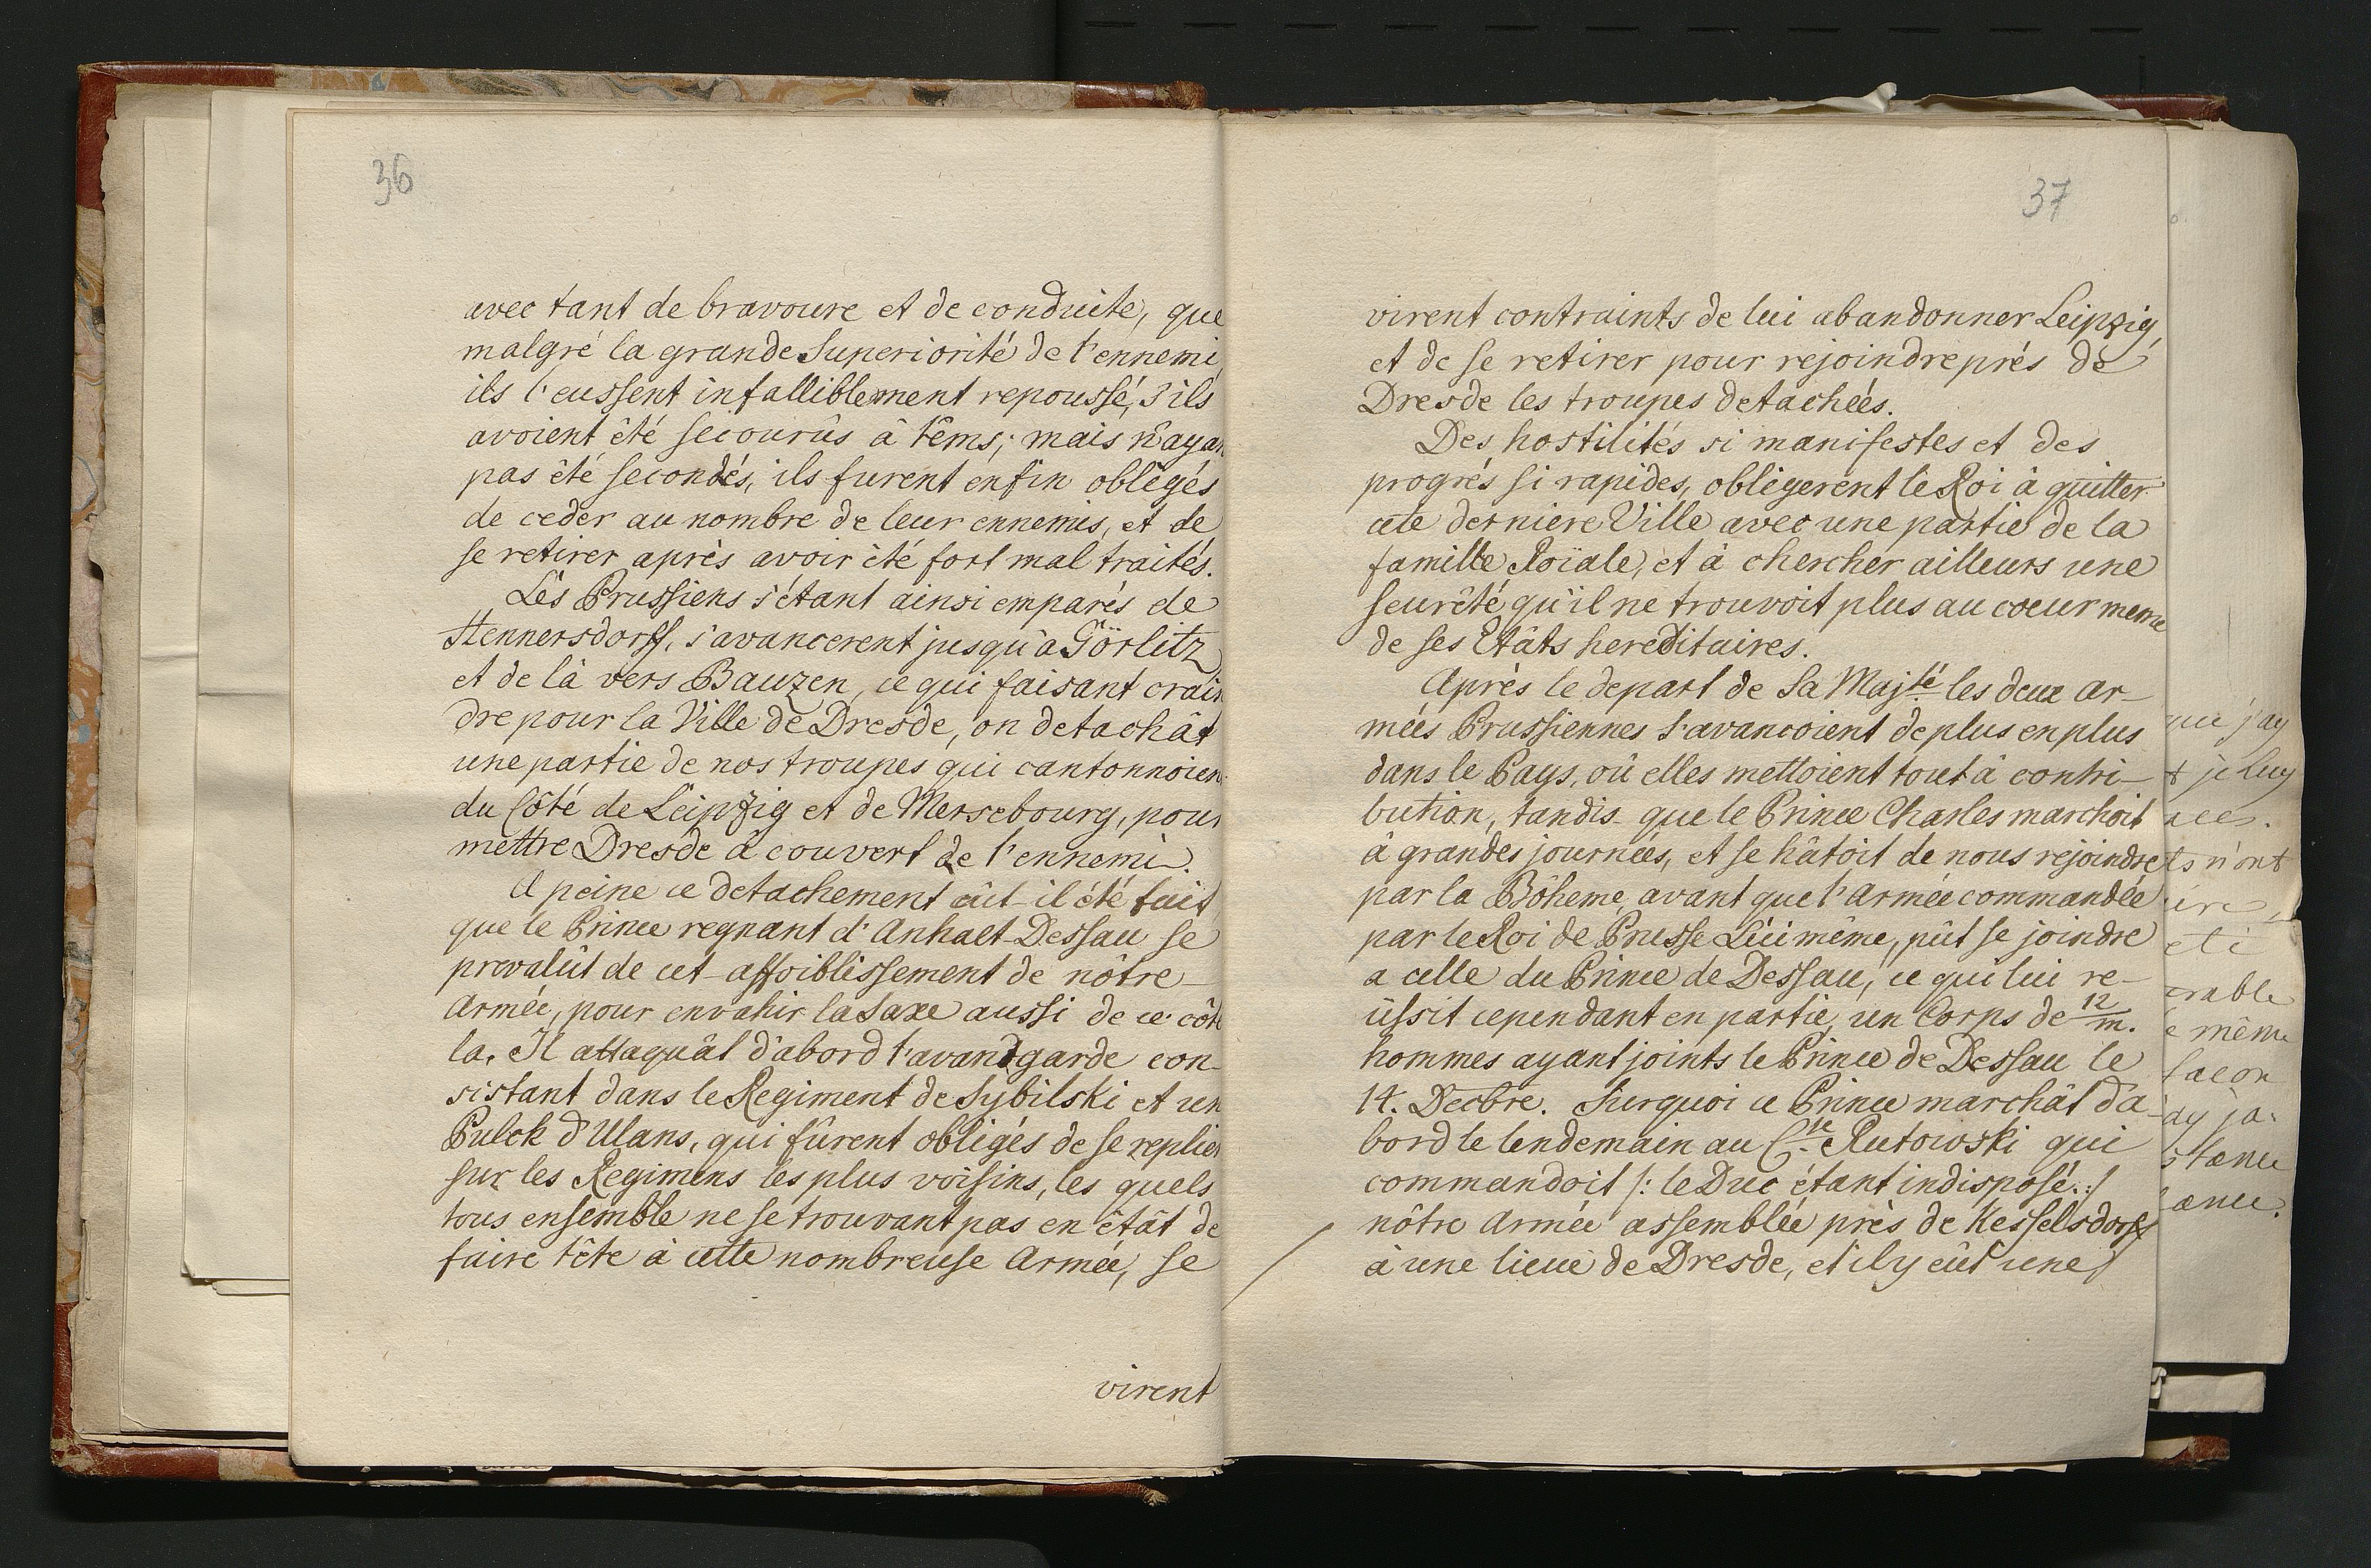 36
avec tant de bravoure et de conduite, que
malgré la grande Superiorité de l'ennemi,
ils l'eussent infalliblement repoussé, s'ils
avoient êté secourûs â têms; mais n'ayan
pas êté secondés, ils furent enfin obligés
de ceder au nombre de leur ennemis, et de
se retirer après avoir êté fort mal traités.
Les Prussiens s'étant ainsi emparés de
Hennersdorff, s'avancerent jusqu'a Görlitz
et de là vers Bauzen, ce qui faisant crain
dre pour la Ville de Dresde, on detachât
une partie de nos troupes qui cantonnoien
du Côté de Leipzig et de Mersebourg, pour
mettre Dresde à couvert de l'ennemi.
A peine ce detachement eût-il été fait,
que le Prince regnant d'Anhalt-Dessau se
prevalût de cet affoiblissement de nôtre
Armée, pour envahir la Saxe aussi de ce côté
la. Il attaquât d'abord l'avandgarde con-
sistant dans le Regiment de Sybilski et un
Pulck d'Ulans, qui fûrent obligés de se replier
sur les Regimens les plus voisins, les quels
tous ensemble ne se trouvant pas en êtât de
faire tête à cette nombreuse Armée, se
virent
37
virent contraints de lui abandonner Leipzig,
et de se retirer pour rejoindre prés de
Dresde les troupes detachées.
Des hostilités si manifestes et des
progrés si rapides, obligerent le Roi à quitter
cete derniere Ville avec une partie de la
famille Roïale, et à chercher ailleurs une
seurêté qu'il ne trouvoit plus au coeur meme
de ses Etâts hereditaires.
Après le depart de Sa Majté les deux ar-
mées Prussiennes s'avancoient de plus en plus
dans le Pays, oû elles mettoient tout â contri-
bution, tandis que le Prince Charles marchoit
â grandes journées, et se hâtoit de nous rejoindre
par la Bôheme, avant que l'Armée commandée
par le Roi de Prusse Lui même, pût se joindre
a celle du Prince de Dessau, ce qui lui re-
üssit cependant en partie, un Corps de 12/m.
hommes ayant joints le Prince de Dessau le
14. Decbre. Surquoi ce Prince marchât d'a-
bord le lendemain au Cte Rutowski qui
commandoit /: le Duc étant indisposé :/
nôtre Armée assemblée près de Kesselsdorff
à une lieuë de Dresde, et il y eût une
que j'ay
t je luy
nce.
ts n'ont
ire
eti
erable
e même
facon
'ay ja-
stance
ance.